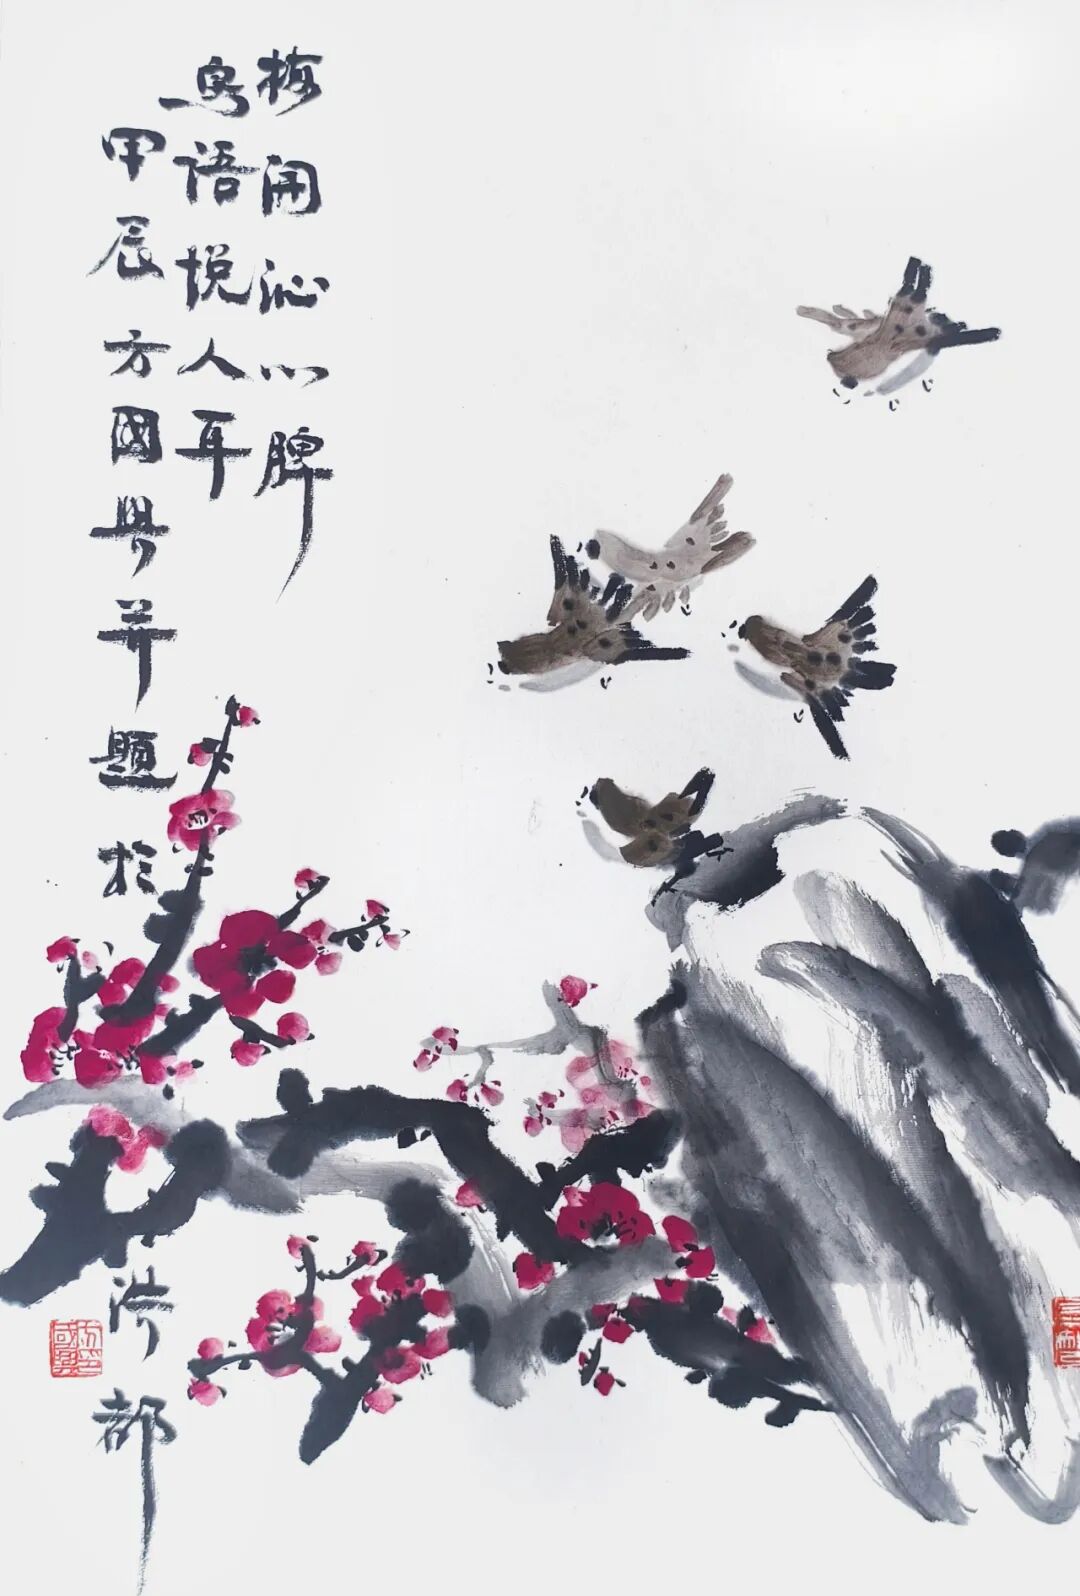 梅開沁心脾
鳥語悦人耳
甲辰方國興并題於洪都